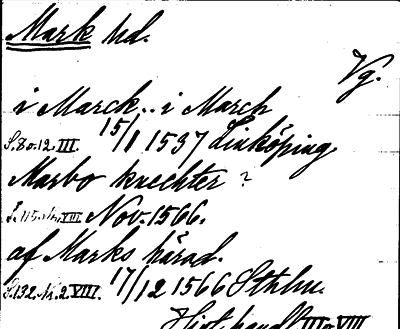 Mark hd.
Vg.
i Marck.. i March
S. 80. 12. III. 15/1 1537 Linköping
Marbo knechter ?
S. 115. VIII Nov. 1566.
af Marks härad.
S. 132. Nr. 2 VIII. 17/12 1566 Sthlm.
Hist. handl. III o VIII